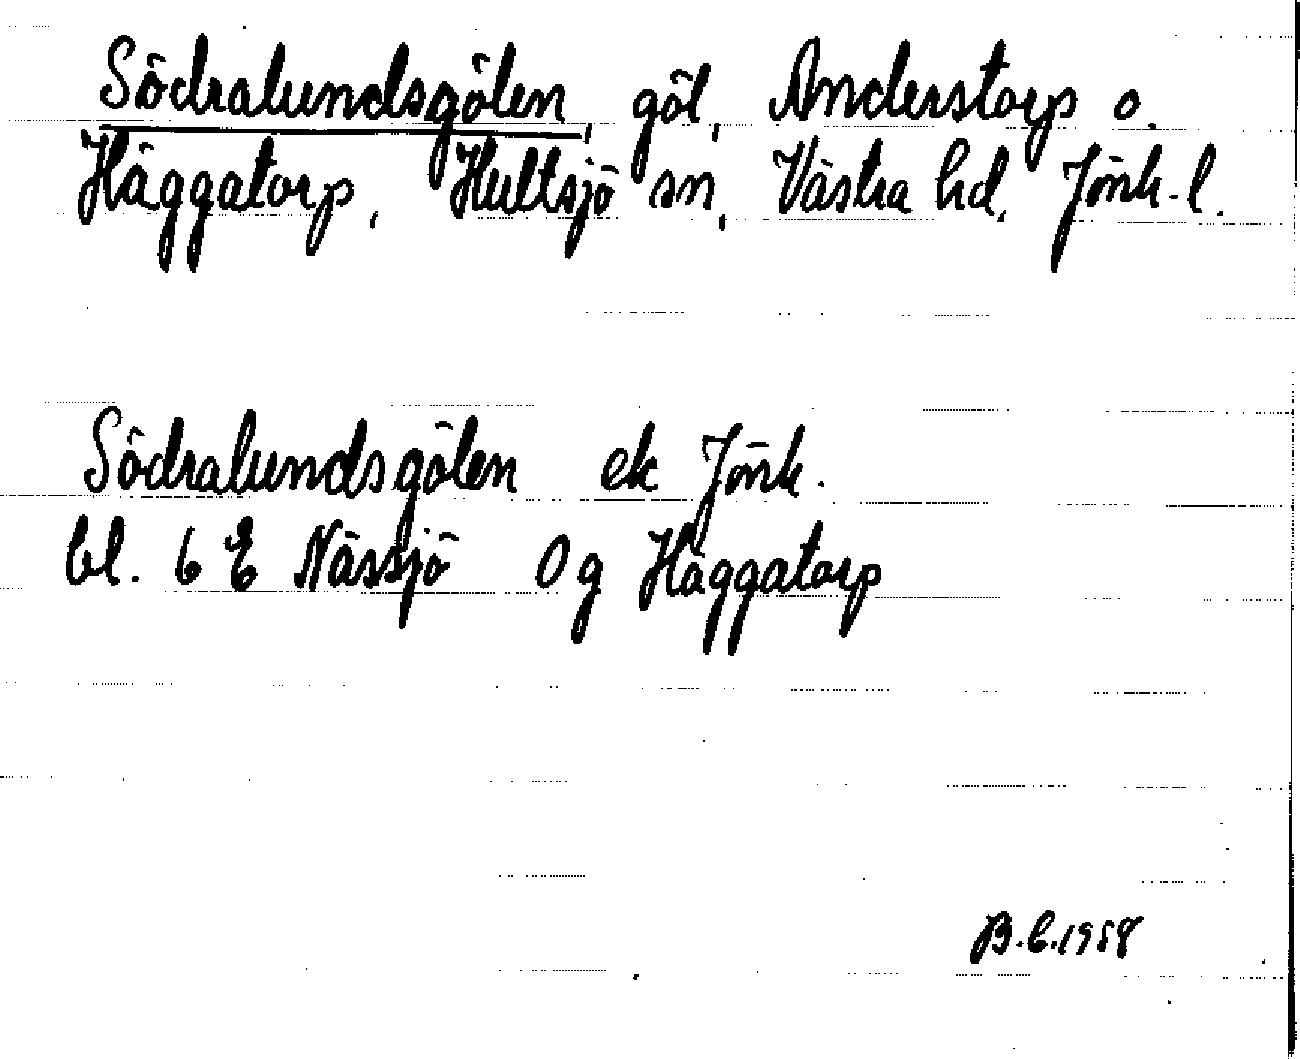 Södralundsgölen, göl, Anderstorp o.
Häggatorp, Hultsjö sn, Västra hd, Jönk. l.
Södralundsgölen ek Jönk.
bl. 6 E Nässjö 0 g Häggatorp
B. C. 1958